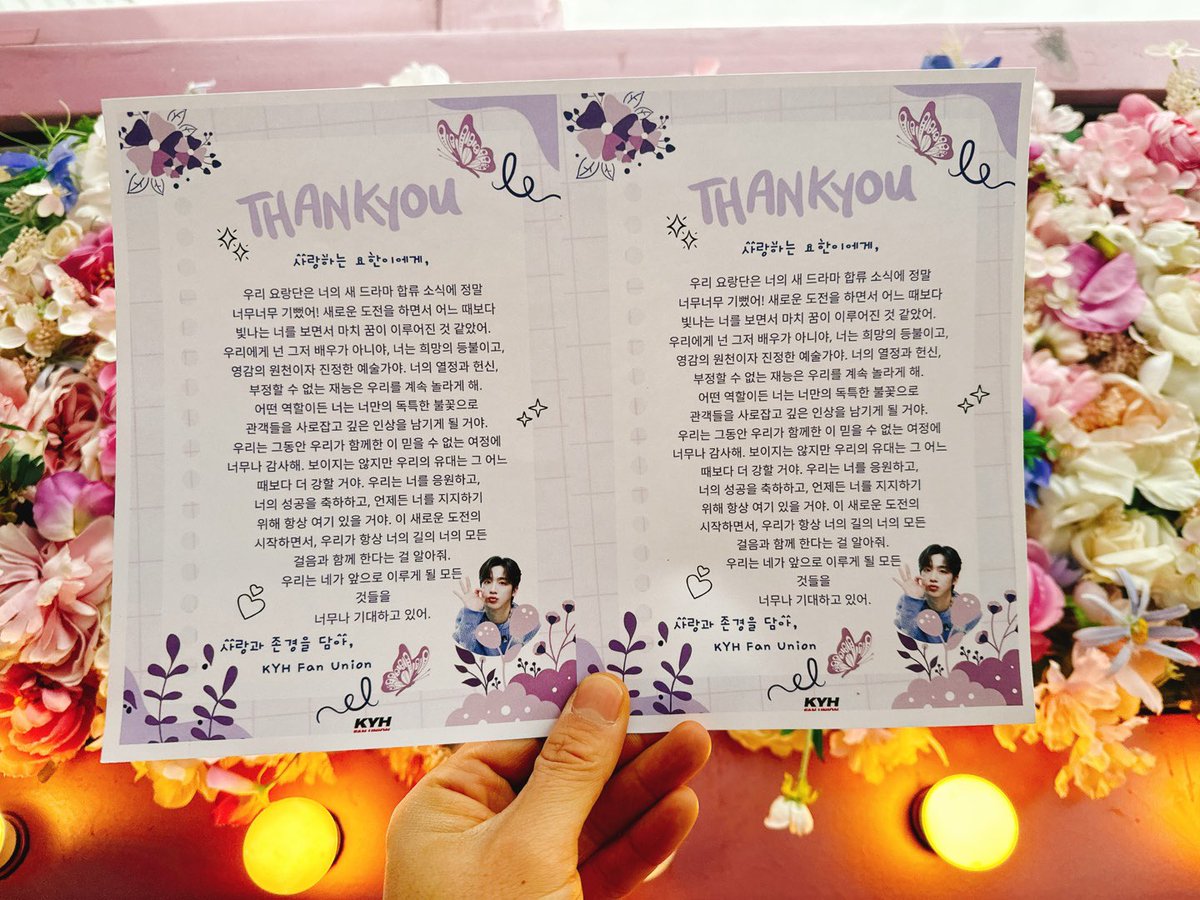 THANKYOU
사랑하는 요한이에게,
우리 요랑단은 너의 새 드라마 합류 소식에 정말
너무너무 기뻤어! 새로운 도전을 하면서 어느 때보다
빛나는 너를 보면서 마치 꿈이 이루어진 것 같았어.
우리에게 넌 그저 배우가 아니야, 너는 희망의 등불이고,
영감의 원천이자 진정한 예술가야. 너의 열정과 헌신,
부정할 수 없는 재능은 우리를 계속 놀라게 해.
어떤 역할이든 너는 너만의 독특한 불꽃으로
관객들을 사로잡고 깊은 인상을 남기게 될 거야.
우리는 그동안 우리가 함께한 이 믿을 수 없는 여정에
너무나 감사해. 보이지는 않지만 우리의 유대는 그 어느
때보다 더 강할 거야. 우리는 너를 응원하고,
너의 성공을 축하하고, 언제든 너를 지지하기
위해 항상 여기 있을 거야. 이 새로운 도전의
시작하면서, 우리가 항상 너의 길의 너의 모든
걸음과 함께 한다는 걸 알아줘.
우리는 네가 앞으로 이루게 될 모든
것들을
너무나 기대하고 있어.
사랑과 존경을 담아,
KYH Fan Union
KYH
FAN UNION
THANKYOU
사랑하는 요한이에게,
우리 요랑단은 너의 새 드라마 합류 소식에 정말
너무너무 기뻤어! 새로운 도전을 하면서 어느 때보다
빛나는 너를 보면서 마치 꿈이 이루어진 것 같았어.
우리에게 넌 그저 배우가 아니야, 너는 희망의 등불이고,
영감의 원천이자 진정한 예술가야. 너의 열정과 헌신,
부정할 수 없는 재능은 우리를 계속 놀라게 해.
어떤 역할이든 너는 너만의 독특한 불꽃으로
관객들을 사로잡고 깊은 인상을 남기게 될 거야.
우리는 그동안 우리가 함께한 이 믿을 수 없는 여정에
너무나 감사해. 보이지는 않지만 우리의 유대는 그 어느
때보다 더 강할 거야. 우리는 너를 응원하고,
너의 성공을 축하하고, 언제든 너를 지지하기
위해 항상 여기 있을 거야. 이 새로운 도전의
시작하면서, 우리가 항상 너의 길의 너의 모든
걸음과 함께 한다는 걸 알아줘.
우리는 네가 앞으로 이루게 될 모든
것들을
너무나 기대하고 있어.
사랑과 존경을 담아,
KYH Fan Union
KYH
FAN UNION